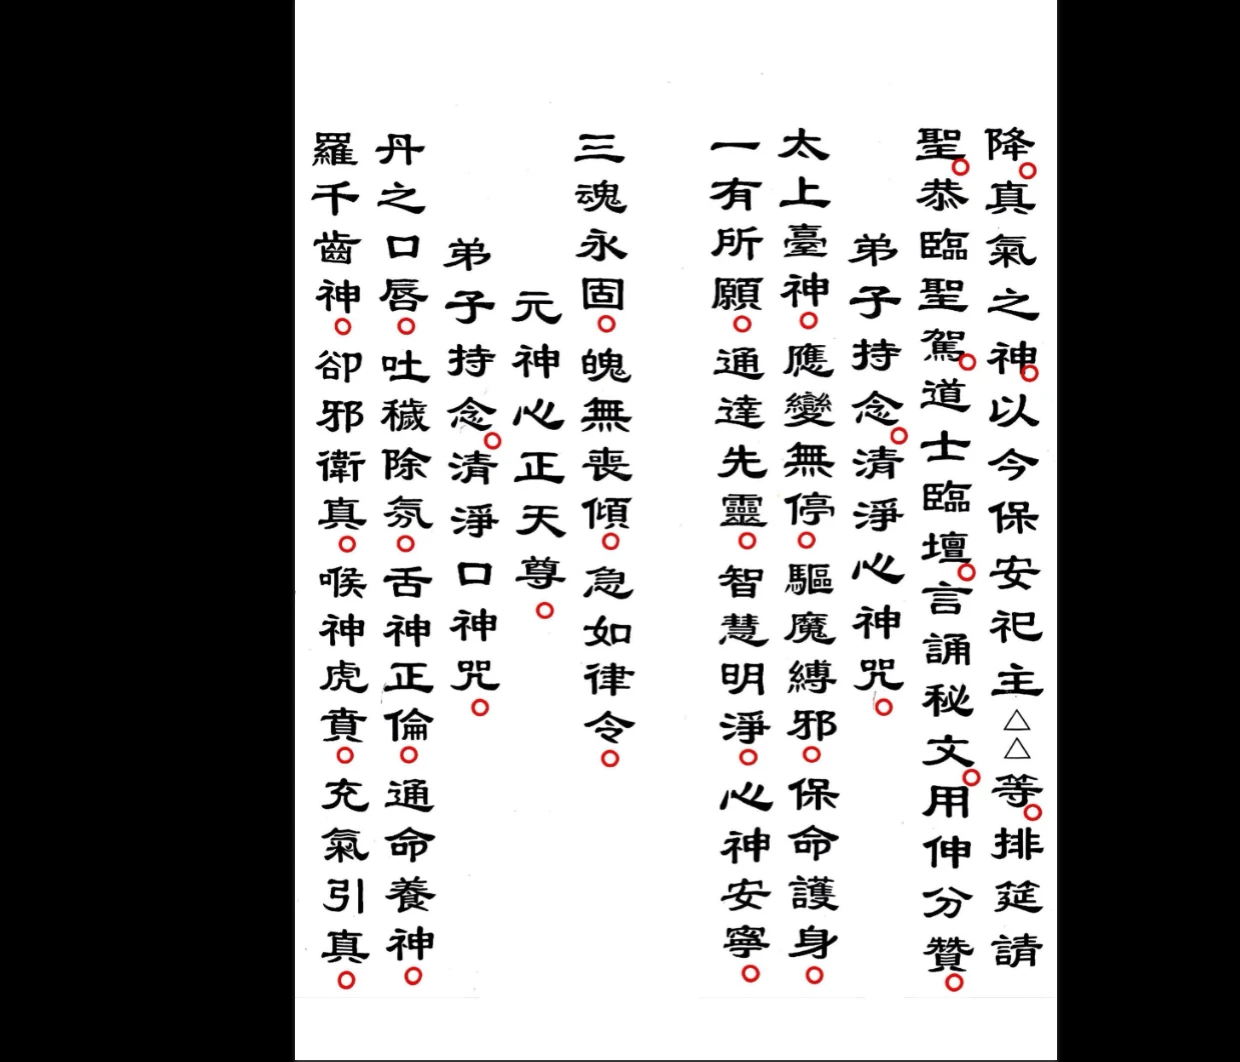 降。真氣之神。以今保安祀主△△等。排筵請
聖。恭臨聖駕。道士臨壇。言誦秘文。用伸分贊。
弟子持念。清淨心神咒。
太上臺神。應變無停。驅魔縛邪。保命護身。
一有所願。通達先靈。智慧明淨。心神安寧。
三魂永固。魄無喪傾。急如律令。
元神心正天尊。
弟子持念。清淨口神咒。
丹之口唇。吐穢除氛。舌神正倫。通命養神。
羅千齒神。卻邪衛真。喉神虎賁。充氣引真。